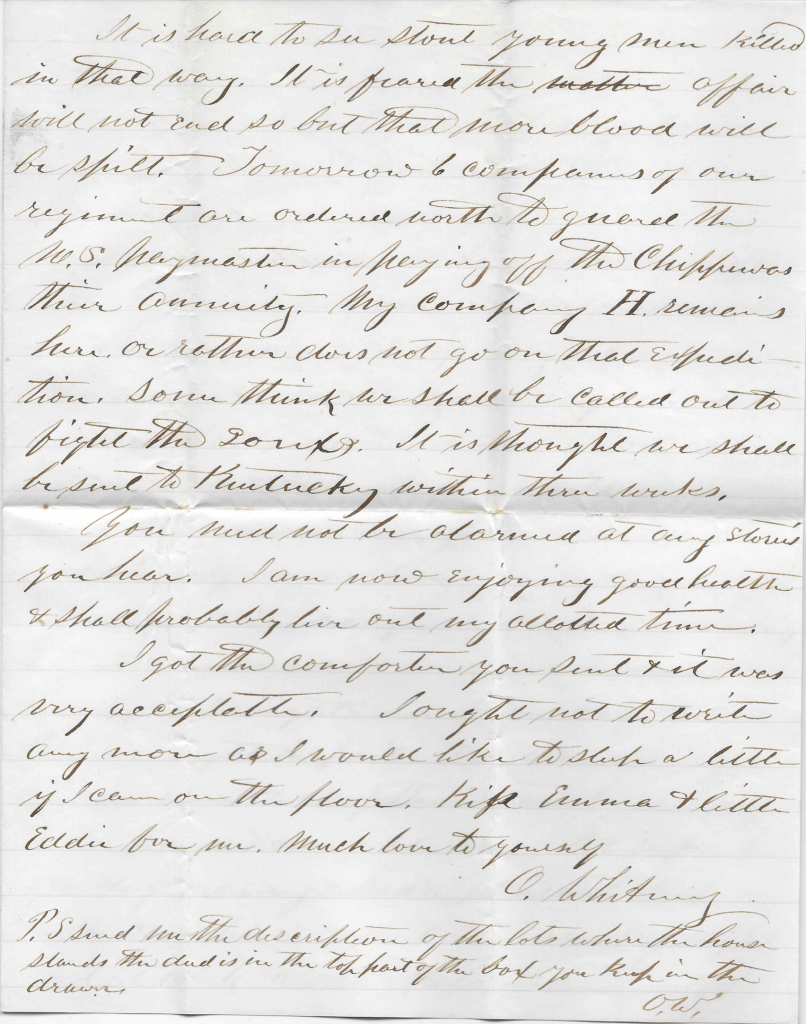 It is hard to see stout young men killed
in that way. It is feared the matter affair
will not end so but that more blood will
be spilt. Tomorrow 6 companies of our
regiment are ordered north to guard the
U.S. Paymaster in paying off the Chippewas
their annuity. My company H. remains
here. or rather does not go on that expedi-
tion. Some think we shall be called out to
fight the Soux. It is thought we shall
be sent to Kentucky within three weeks.
You need not be alarmed at any stories
you hear. I am now enjoying good health
& shall probably live out my allotted time.
I got the comforter you sent & it was
very acceptable. I ought not to write
any more as I would like to sleep a little
if I can on the floor. Kiss Emma & little
Eddie for me. Much love to yourself
O. Whitney
P.S send me the description of the lots where the house
stands the deed is in the top part of the box you keep in the
drawer
O.W.